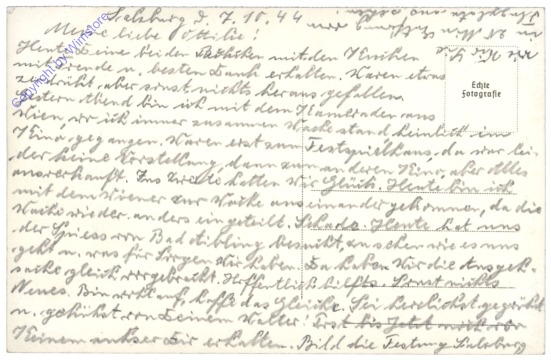 Salzburg d. 7.10.44
Meine liebe Ottilie!
Heute Deine beiden mit den
mit Freude u. besten Dank erhalten. Waren etwas
zerdrückt, aber sonst nichts heraus gefallen.
Gestern Abend bin ich mit dem Kameraden aus
Wien, wo ich immer zusammen Wache stand heimlich ins
Kino gegangen. Waren erst zum Festspielhaus, da war lei-
der keine Vorstellung, dann zum anderen Kino, aber Alles
ausverkauft. Ins zweite hatten wir Glück. Heute bin ich
mit dem Wiener zur Wache auseinander gekommen, da die
Wache wieder anders eingeteilt. Schade. Heute hat uns
der Spiess von Bad Aibling besucht, zu sehen wie es uns
geht u. was für Sorgen wir haben. Da haben wir die Ausgeh-
sache gleich vorgebracht. Hoffentlich hilfts. Sonst nichts
Neues. Bin wohlauf, hoffe das Gleiche. Sei herzlichst gegrüßt
u. geküsst von Deinem Walter! Erst bis jetzt noch von
Keinem ausser Dir erhalten. Bild die Festung Salzburg
Echte
Fotografie
Copyright by Winstore